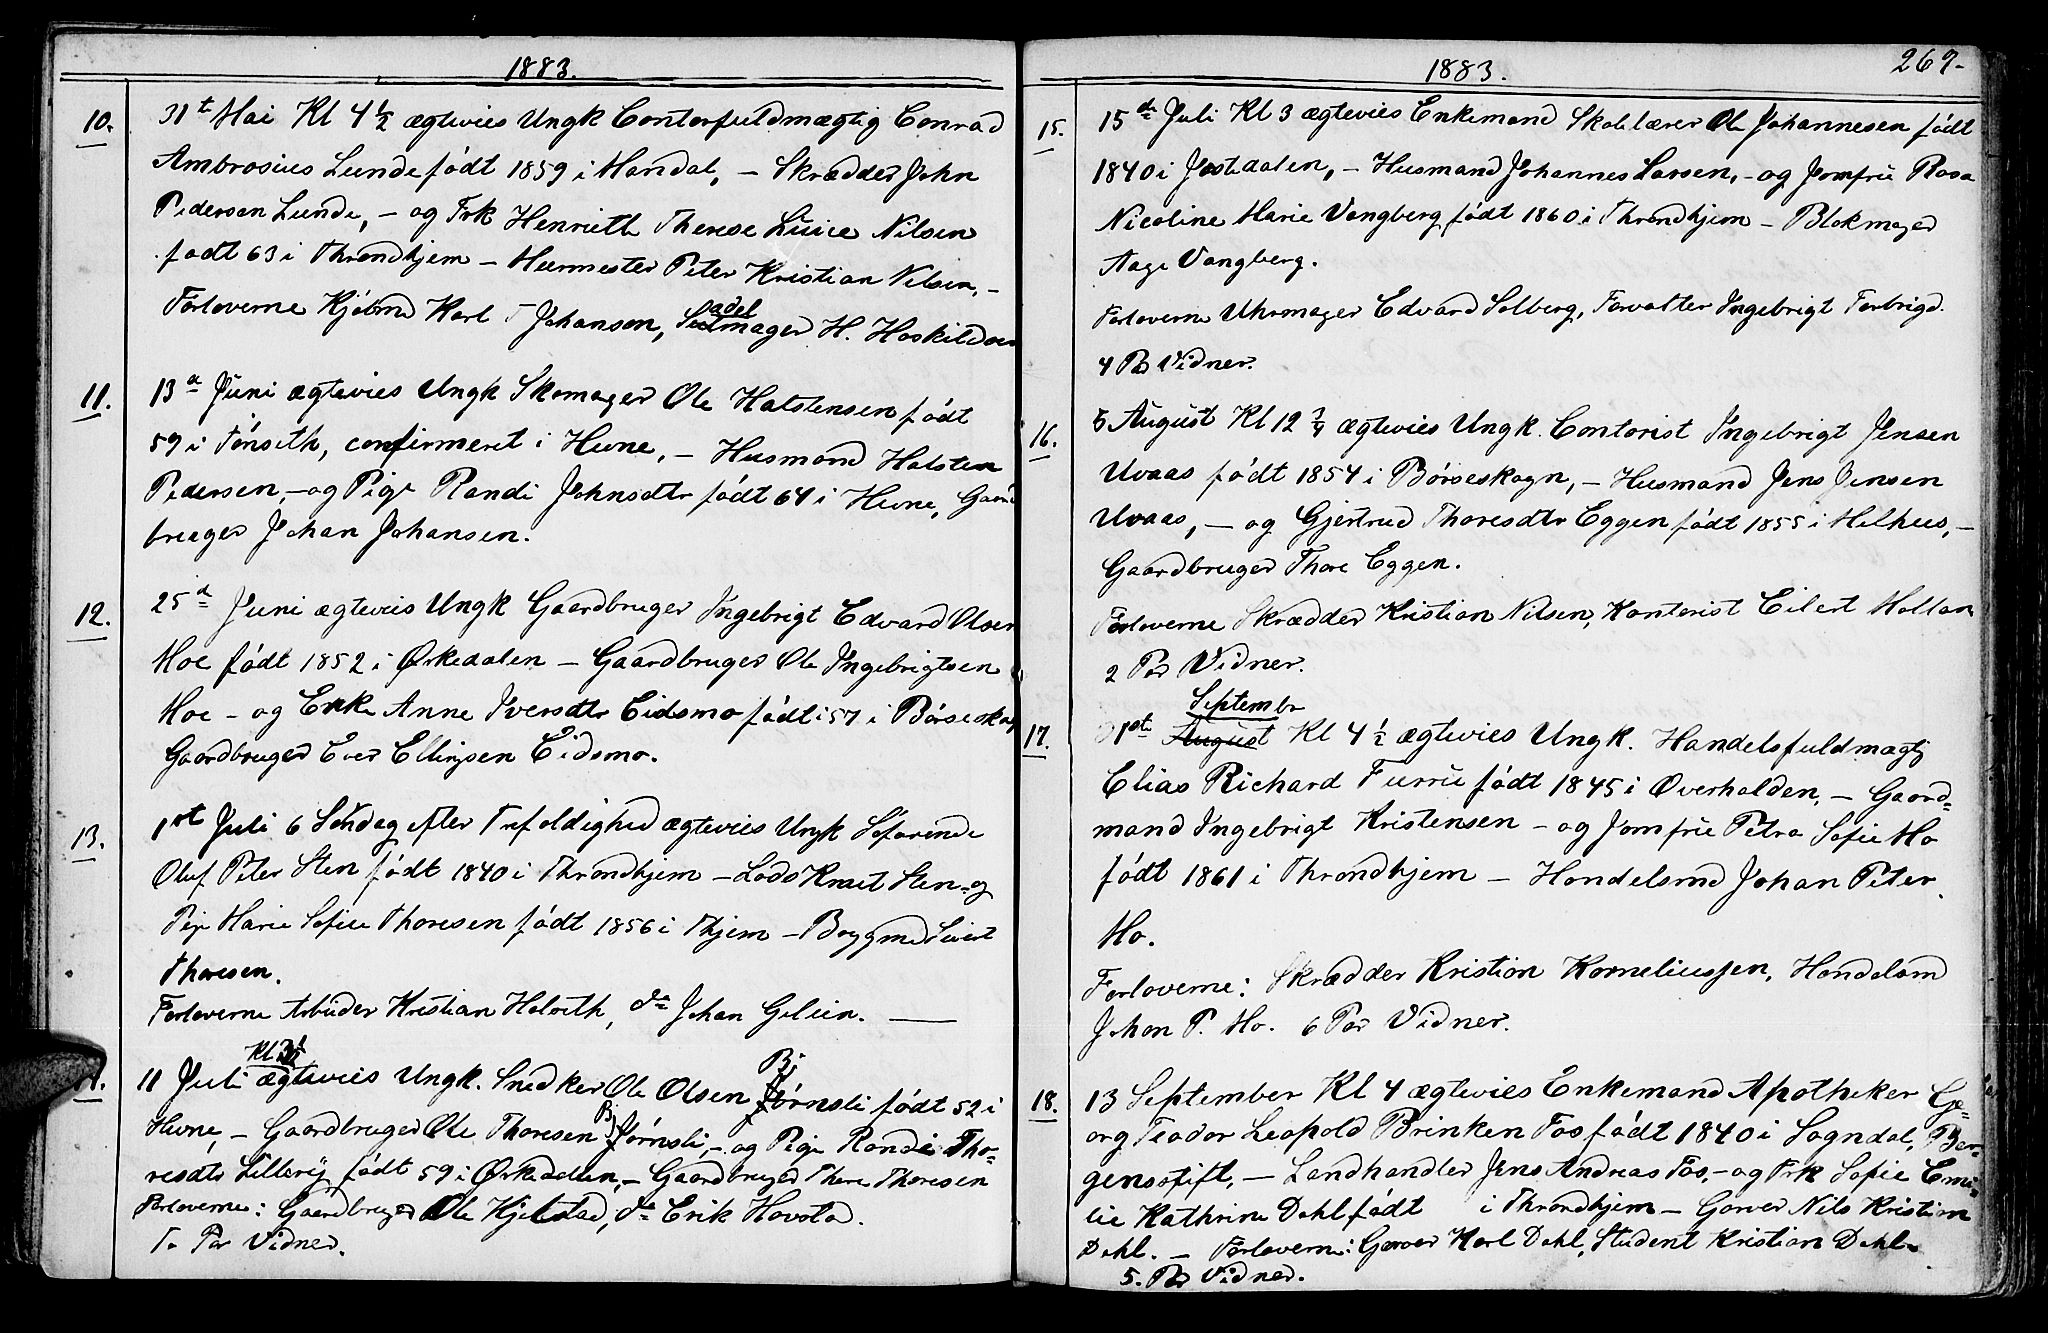 1883.
10. 31t Mai Kl 4 1/2 ægtevies Ungk Contorfuldmægtig Conrad
Ambrosius Lunde født 1859 i Mandal, – Skrædder John
Pedersen Lunde, – og Frk Henriette Therese Luice Nilsen
født 63 i Throndhjem – Murmester Peter Kristian Nilsen, –
Forloverne Kjøbmd Karl Johansen, Sadelmager H. Haskildsen
11. 13d Juni ægtevies Ungk Skomager Ole Halstensen født
59 i Tønseth, confirmeret i Hevne, – Husmand Halsten
Pedersen, – og Pige Randi Johnsdtr født 64 i Hevne, Gaard
bruger Johan Johansen.
12. 25d Juni ægtevies Ungk Gaardbruger Ingebrigt Edvard Olsen
Hoe født 1852 i Ørkedalen – Gaardbruger Ole Ingebrigtsen
Hoe – og Enke Anne Iversdtr Eidsmo født i 57 i Børseskog
Gaardbruger Ever Ellingsen Eidsmo.
13. 1st Juli 6 Søndag efter Trefoldighed ægtevies Ungk Søfarende
Oluf Peter Sten født 1840 i Throndhjem – Lods Knut Sten – og
Pige Marie Sofie Thoresen født 1856 i Thjem – Byggmd Sivert
Thoresen.
Forloverne Arbeider Kristian Halseth, do Johan Gelein. —
Kl 3½
14. 11 Juli ægtevies Ungk. Snedker Ole Olsen Bjørnsli født 52 i
Hevne, – Gaardbruger Ole Thoresen Bjørnsli, – og Pige Randi Tho-
resdtr Lillerij født 59 i Ørkedalen, – Gaardbruger Thore Thoresen
Forloverne: Gaardbruger Ole Kjelstad, do Erik Hovstad.
To Par Vidner.
1883. 269.
15. 15de Juli Kl 3 ægtevies Enkemand Skolelærer Ole Johannesen født
1840 i Jostedalen, – Husmand Johannes Larsen, – og Jomfru Rosa
Nicoline Marie Vangberg født 1860 i Throndhjem – Blokmager
Aage Vangberg.
Forloverne Uhrmager Edvard Solberg, Forvalter Ingebrigt Forbrigd.
4 Par Vidner.
16. 5 August Kl 12 3/4 ægtevies Ungk. Contorist Ingebrigt Jensen
Uvaas født 1854 i Børseskogn, – Husmand Jens Jensen
Uvaas, – og Gjertrud Thoresdtr Eggen født 1855 i Melhus, –
Gaardbruger Thore Eggen.
Forloverne Skrædder Kristian Nilsen, Kontorist Eilert Mollan
2 Par Vidner.
Septembr
17. 1ste August Kl 4 1/2 ægtevies Ungk. Handelsfuldmægtig
Elias Richard Furru født 1845 i Overhalden, – Gaard-
mand Ingebrigt Kristensen – og Jomfru Petra Sofie Mo
født 1861 i Throndhjem – Handelsmd Johan Peter
Mo.
Forloverne: Skrædder Kristian Korneliussen, Handelsmd
Johan P. Mo. 6 Par Vidner.
18. 13 September Kl 4 ægtevies Enkemand Apotheker Ge-
org Teodor Leopold Brinken Fos født 1840 i Sogndal, Ber-
gensstift, – Landhandler Jens Andreas Fos, – og Frk Sofie Emi-
lie Kathrine Dahl født i Throndhjem – Garver Nils Kristian
Dahl. – Forloverne: Garver Karl Dahl, Student Kristian Dahl.
5. Par Vidner.